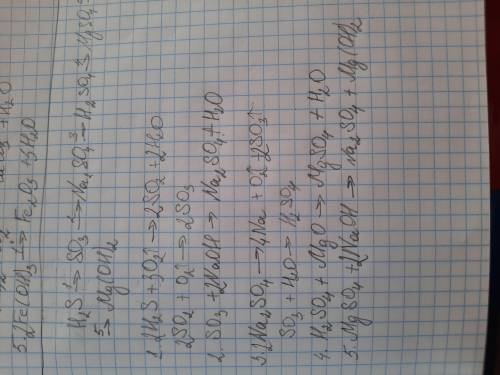 + H₂O
5. 2Fe(OH)₃ →ᵗ Fe₂O₃ + 3H₂O
H₂S →¹ SO₃ →² Na₂SO₄ →³ H₂SO₄ →⁴ MgSO₄
→⁵ Mg(OH)₂
1. 2H₂S + 3O₂ → 2SO₂ + 2H₂O
2SO₂ + O₂ → 2SO₃
2. SO₃ + 2NaOH → Na₂SO₄ + H₂O
3. 2Na₂SO₄ → 4Na + O₂ + 2SO₃↑
SO₃ + H₂O → H₂SO₄
4. H₂SO₄ + MgO → MgSO₄ + H₂O
5. MgSO₄ + 2NaOH → Na₂SO₄ + Mg(OH)₂